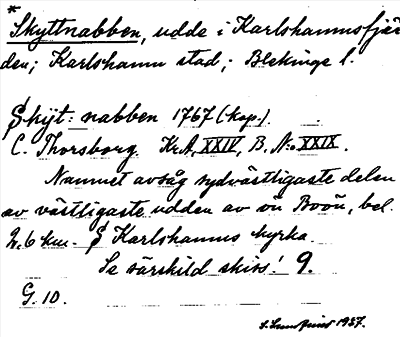 *
Skyttnabben, udde i Karlshamnsfjär
den; Karlshamn stad; Blekinge l.
Skÿt: nabben 1767 (kop.).
C. Thorsborg. Kr.A, XXIV, B. No XXIX.
Namnet avsåg sydvästligaste delen
av västligaste udden av ön Boön, bel.
2,6 km. S Karlshamns kyrka.
Se särskild skiss! 9.
G. 10.
1937.